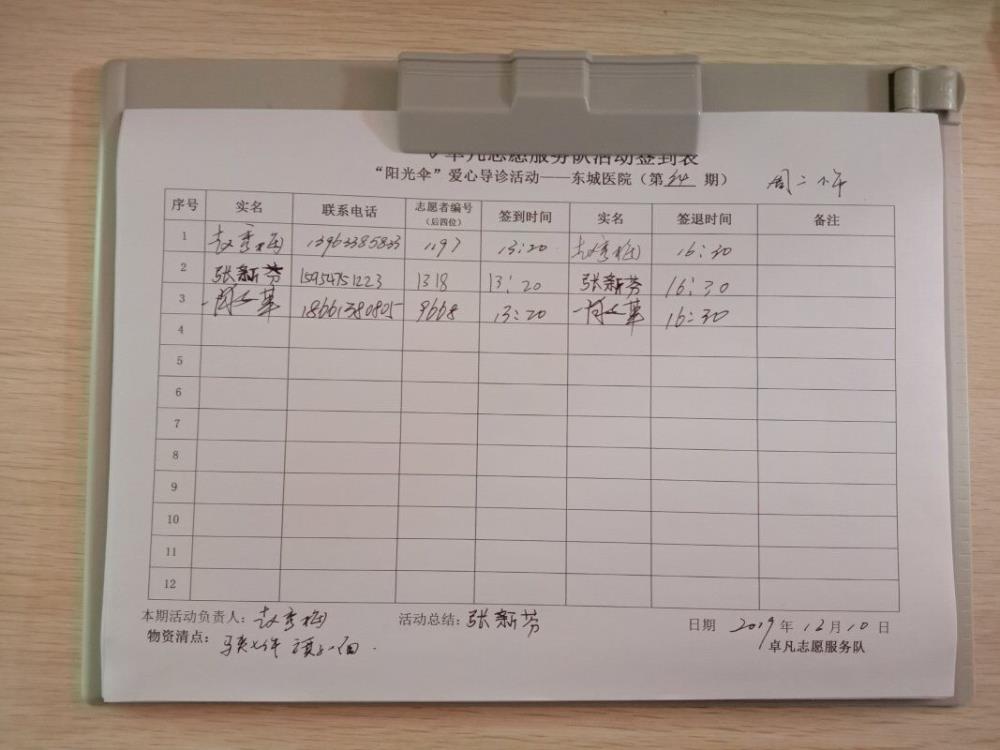 卓凡志愿服务队活动签到表
“阳光伞”爱心导诊活动——东城医院（第 54 期） 周二下午
序号 实名 联系电话 志愿者编号（后四位） 签到时间 实名 签退时间 备注
1 赵秀梅 13963385833 1197 13:20 赵秀梅 16:30
2 张新芬 15954751223 1318 13:20 张新芬 16:30
3 18661380805 9668 13:20 16:30
4
5
6
7
8
9
10
11
12
本期活动负责人：赵秀梅 活动总结：张新芬 日期 2019年12月10日
物资清点：
卓凡志愿服务队